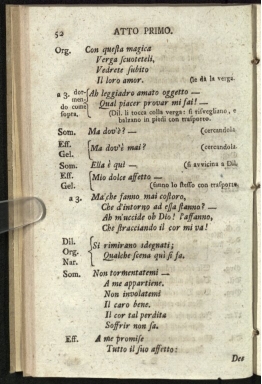 52 ATTO PRIMO.
Org. Con questa magica
Verga scuoteteli,
Vedrete subito
Il loro amor. (le dà la verga.
a 3. dor-
mendo come
sopra. Ah leggiadro amato oggetto —
Qual piacer provar mi fai! —
(Dil. li tocca colla verga: si risvegliano, e
balzano in piedi con trasporto.
Som. Ma dov'è? — (cercandola.
Eff. Gel. Ma dov'è mai? (cercandola.
Som. Ella è quì — (si avvicina a Dil.
Eff. Gel. Mio dolce affetto —
(fanno lo stesso con trasporto.
a 3. Ma che fanno mai costoro,
Che d'intorno ad essa stanno? —
Ah m'uccide oh Dio! l'affanno,
Che stracciando il cor mi va!
Dil. Org. Nar. Si rimirano sdegnati;
Qualche scena quì si fa.
Som. Non tormentatemi —
A me appartiene.
Non involatemi
Il caro bene.
Il cor tal perdita
Soffrir non sa.
Eff. A me promise
Tutto il suo affetto:
Deo